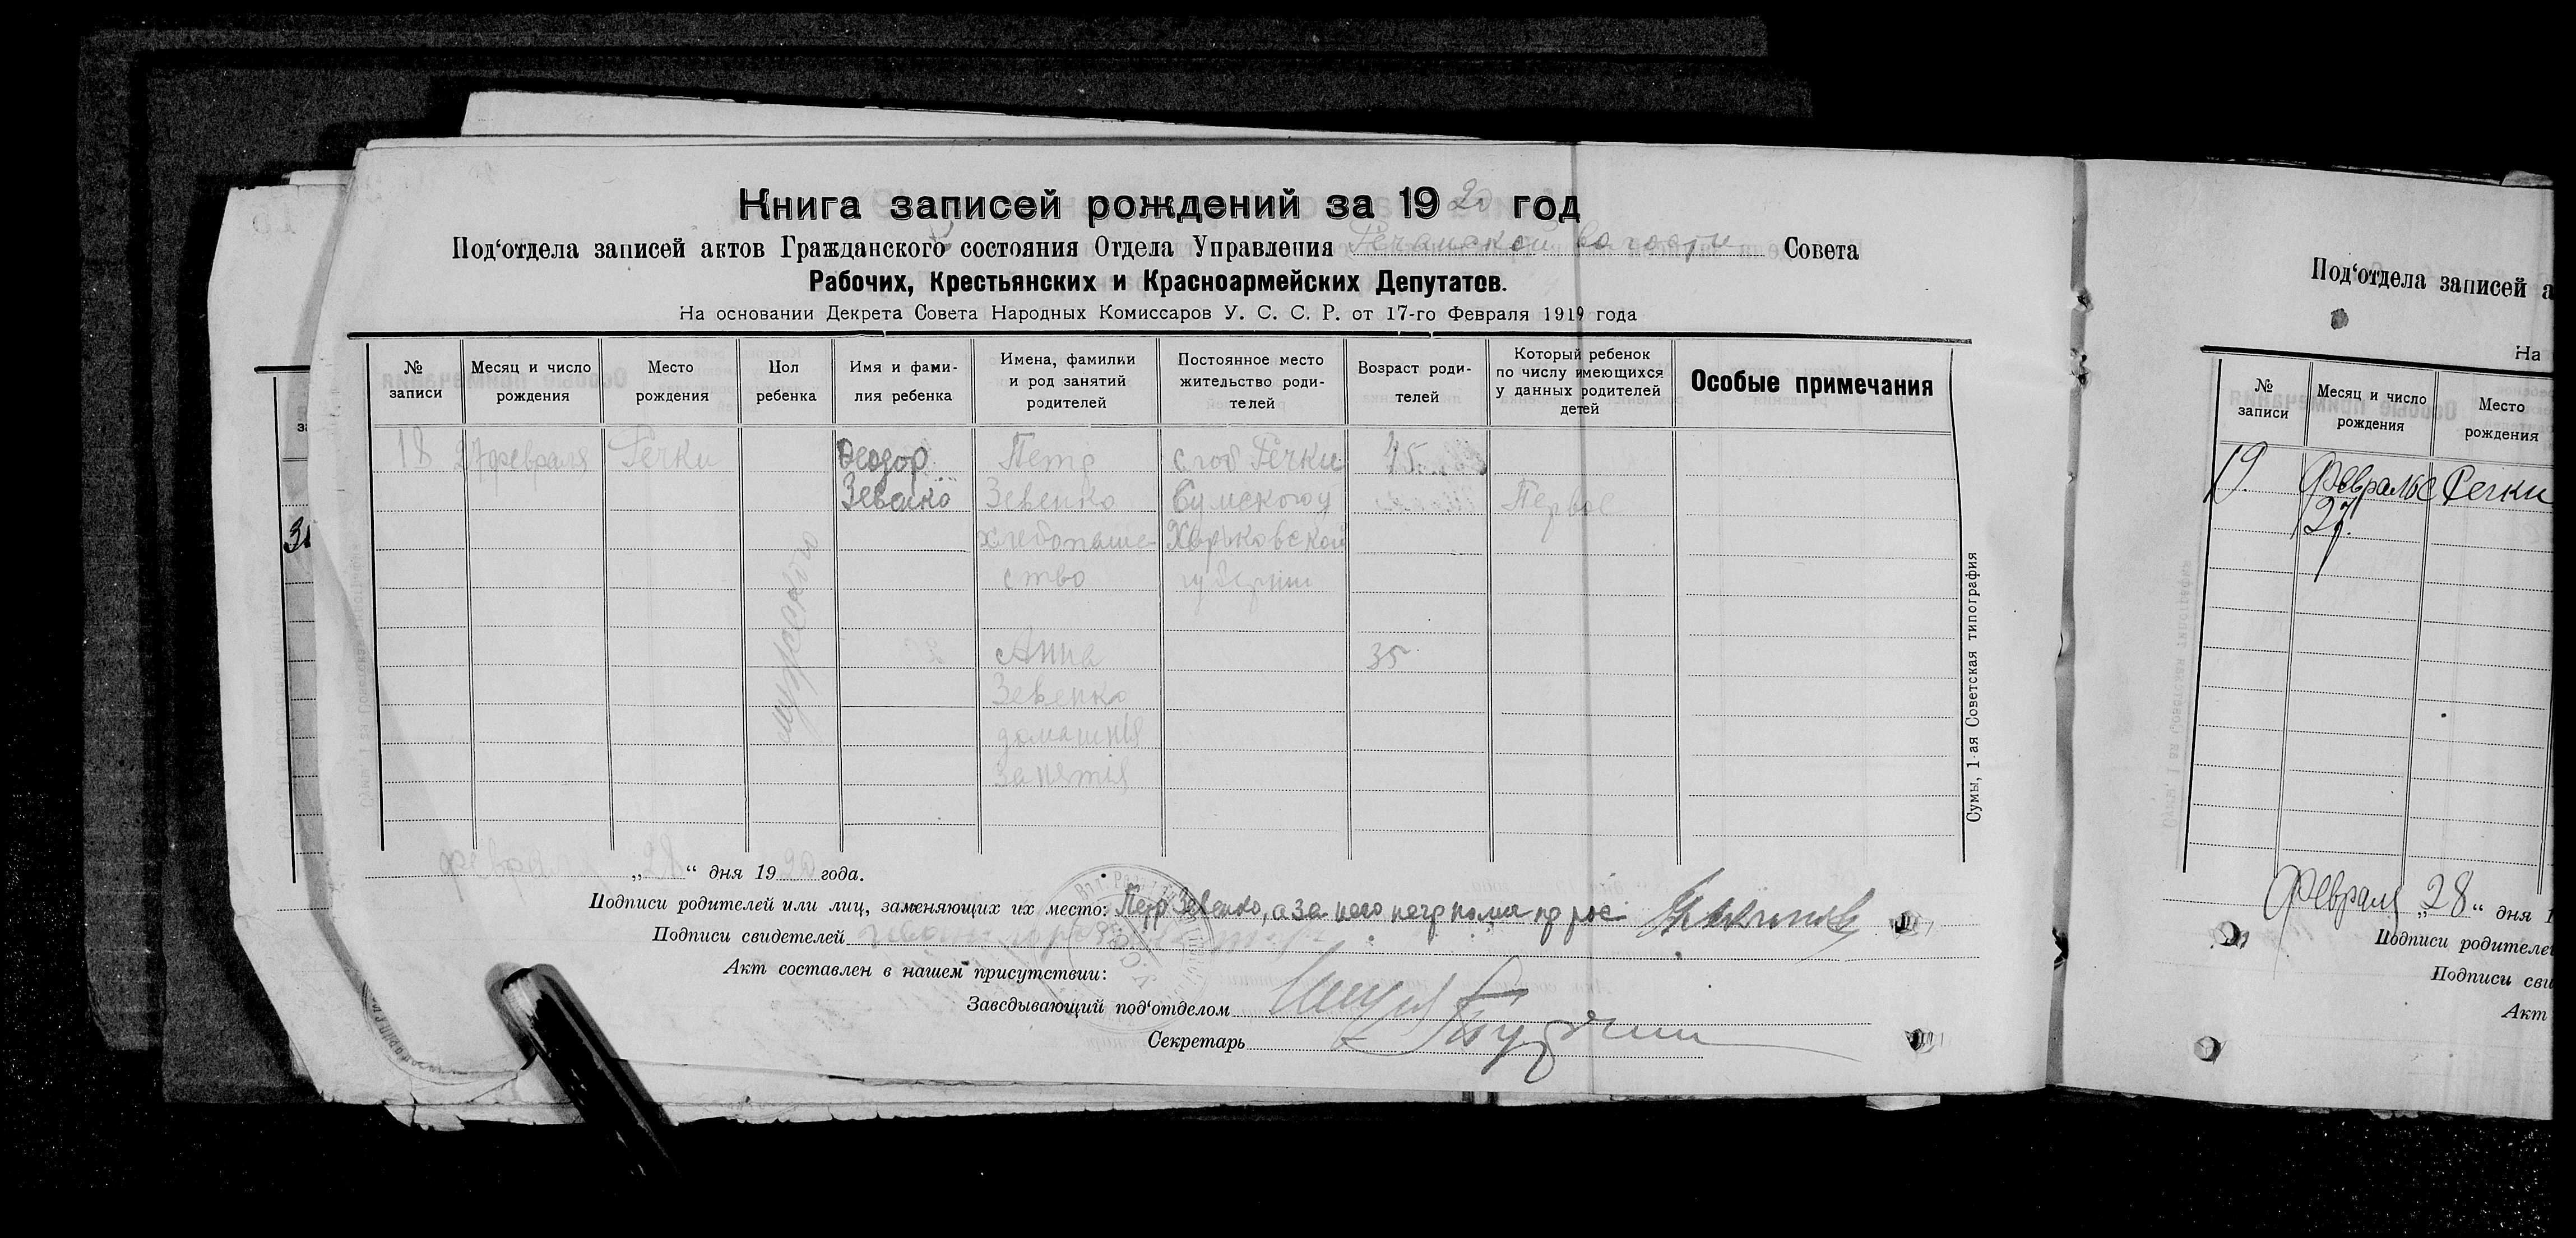 Книга записей рождений за 1920 год
Под‘отдела записей актов Гражданского состояния Отдела Управления Речанской волости Совета
Рабочих, Крестьянских и Красноармейских Депутатов.
На основании Декрета Совета Народных Комиссаров У. С. С. Р. от 17-го Февраля 1919 года
№ записи
Месяц и число рождения
Место рождения
Пол ребенка
Имя и фамилия ребенка
Имена, фамилии и род занятий родителей
Постоянное место жительство родителей
Возраст родителей
Который ребенок по числу имеющихся у данных родителей детей
Особые примечания
18 27 февраля Речки Феодор Петр слоб Речки 45
Зевенко Зевенко Сумского у Первое
хлебопаше- Харьковской
ство губернии
мужского
Анна 35
Зевенко
домашнія
занятія
Сумы, 1-ая Советская типография
февраля „28“ дня 1920 года.
Подписи родителей или лиц, заменяющих их место: Петр Зевенко, а за него негр
Подписи свидетелей
Акт составлен в нашем присутствии:
Заведывающий под‘отделом
Секретарь
Под‘отдела записей а
На
№ записи
Месяц и число рождения
Место рождения
19. Февраля Речки
27.
Февраля „28“ дня 1
Подписи родителе
Подписи сви
Акт